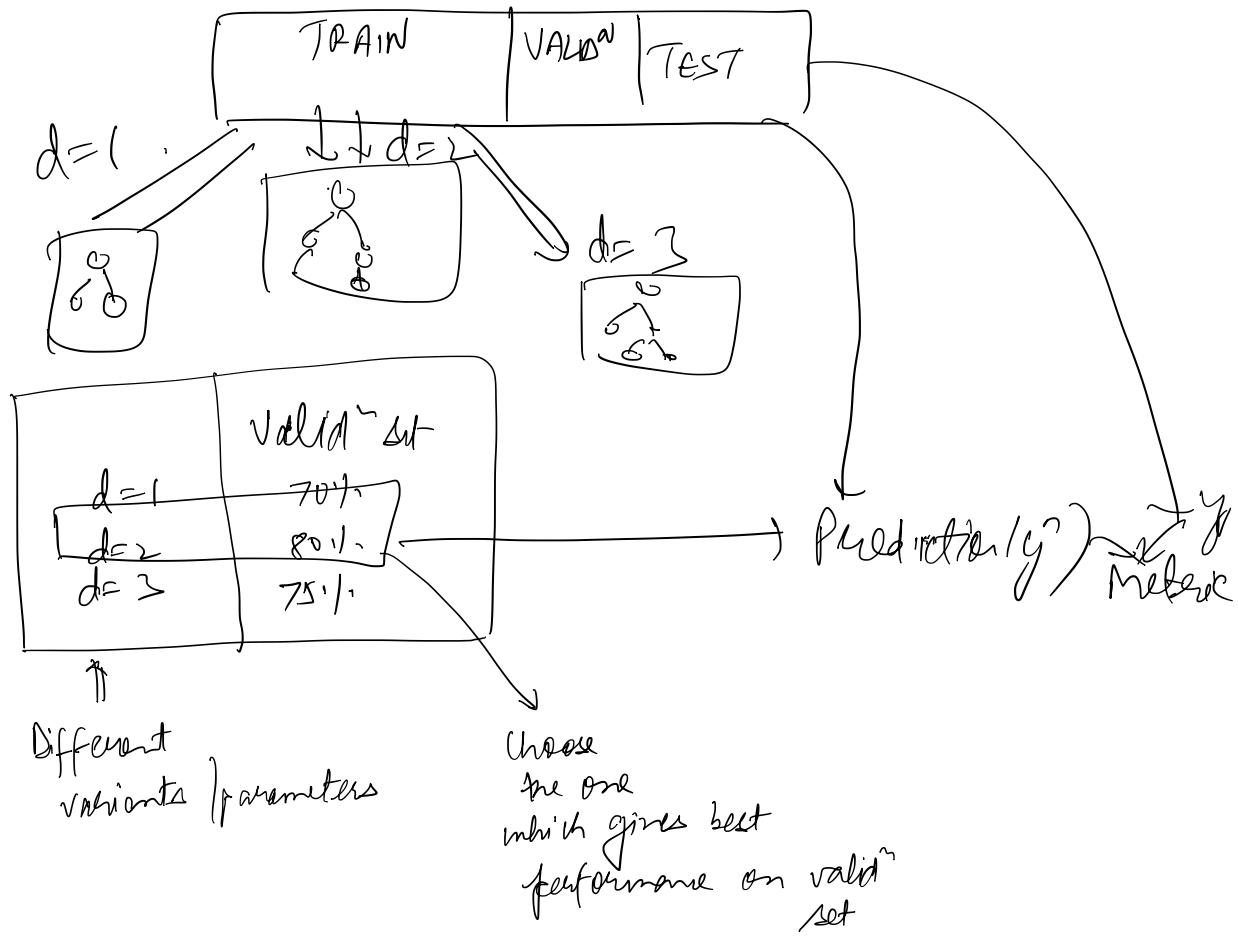 TRAIN
VALIDⁿ
TEST
d=1
d=2
d=3
Validⁿ set
d=1 70%
d=2 80%
d=3 75%
Prediction(ŷ)
y
Metric
Different
variants/parameters
Choose
the one
which gives best
performance on validⁿ
set